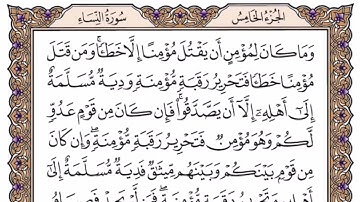 الجزء الخامس
سورة النساء
وَمَا كَانَ لِمُؤْمِنٍ أَن يَقْتُلَ مُؤْمِنًا إِلَّا خَطَـًٔا ۚ وَمَن قَتَلَ
مُؤْمِنًا خَطَـًٔا فَتَحْرِيرُ رَقَبَةٍ مُّؤْمِنَةٍ وَدِيَةٌ مُّسَلَّمَةٌ
إِلَىٰٓ أَهْلِهِۦٓ إِلَّآ أَن يَصَّدَّقُوا۟ ۚ فَإِن كَانَ مِن قَوْمٍ عَدُوٍّ
لَّكُمْ وَهُوَ مُؤْمِنٌ فَتَحْرِيرُ رَقَبَةٍ مُّؤْمِنَةٍ ۖ وَإِن كَانَ
مِن قَوْمٍۭ بَيْنَكُمْ وَبَيْنَهُم مِّيثَـٰقٌ فَدِيَةٌ مُّسَلَّمَةٌ إِلَىٰٓ